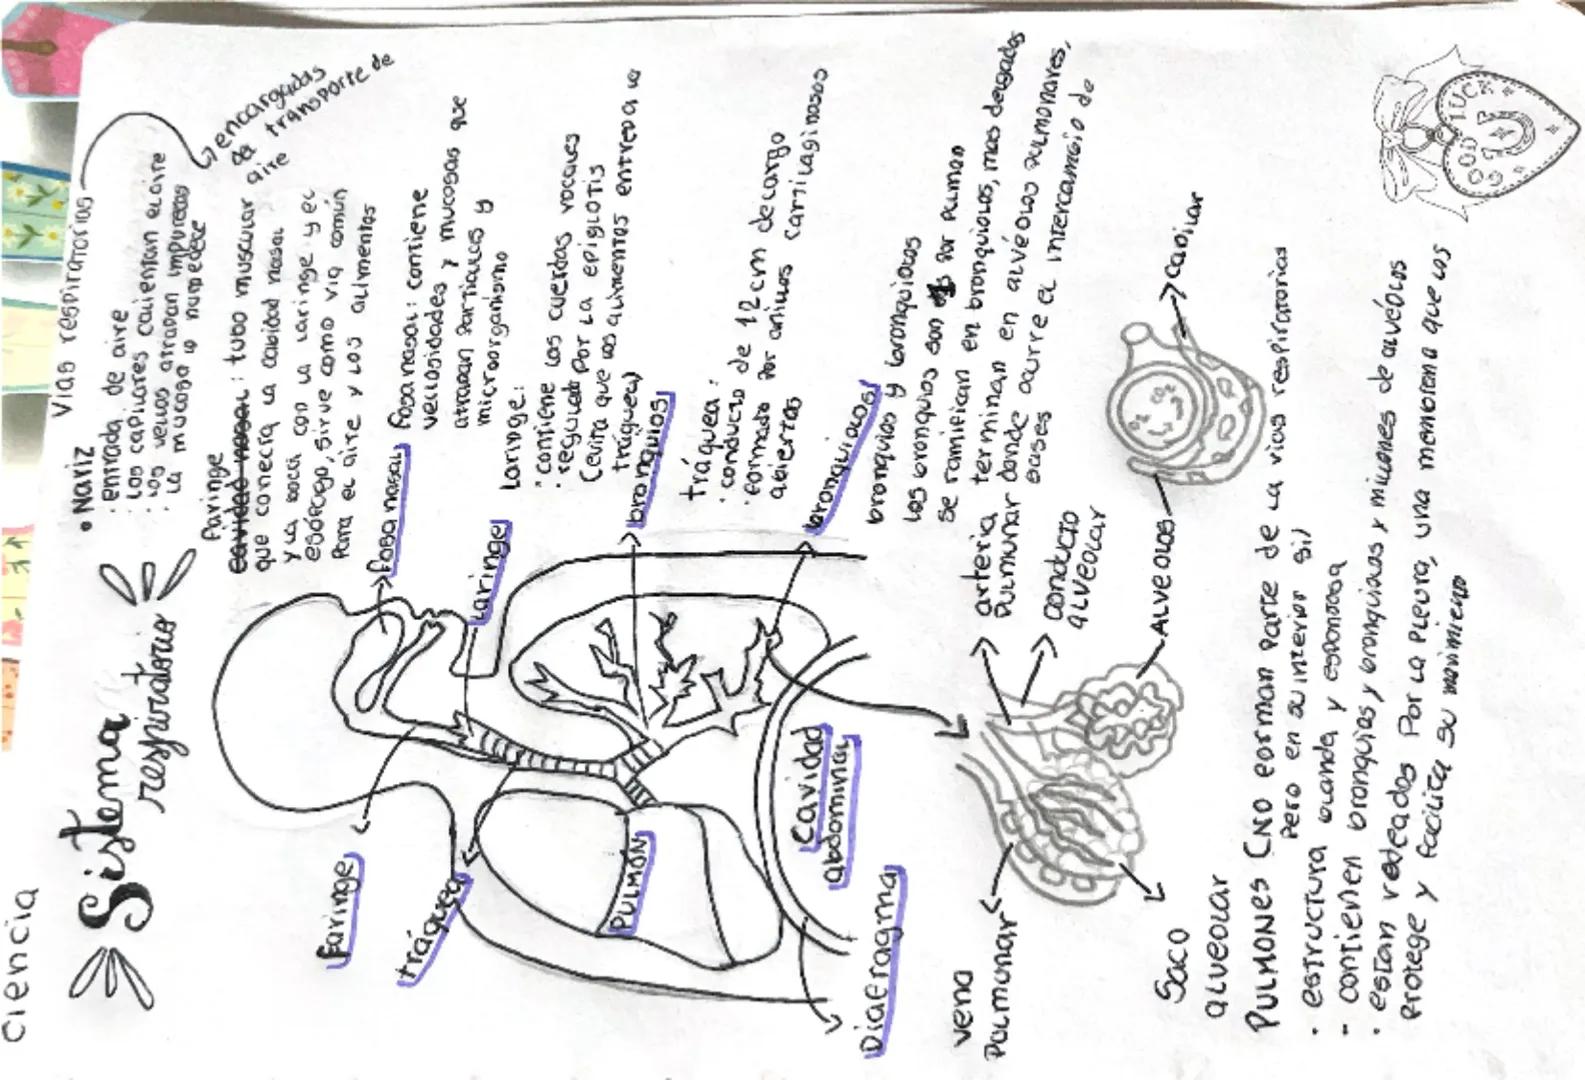 ciencia
Sistema
respiratorio
Vias respiratorias
encargadas
del transporte de
aire
• Nariz
· entrada de aire
· Los capilares calientan el aire
· los vellos atrapan impurezas
· La mucosa lo humedece
Faringe
cavidad nasal: tubo muscular
que conecta la cabidad nasal
y la boca con la laringe y el
esófacgo, sirve como via común
Para el aire y los alimentos
fosa nasal: contiene
vellosidades y mucosas que
atrapan particulas y
microorganismo
Laringe:
· contiene las cuerdas vocales
· regulado por la epiglotis
(evita que los alimentos entren a la
tráquea)
tráquea:
· conducto de 12 cm de largo
· formado por anillos cartilaginosos
abiertos
bronquios y bronquiolos
los bronquios son por pulmon
se ramifican en bronquiolos, mas delgados
terminan en alvéolos pulmonares,
donde ocurre el intercambio de
gases
fosa nasal
Laringe
bronquios
bronquiolos
faringe
tráquea
PULMÓN
Cavidad
abdominal
Diafragma
arteria
Pulmonar
conducto
alveolar
ALVEOLOS
Capilar
vena
Pulmonar
Saco
alveolar
PULMONES (No forman parte de la vias respiratorias
Pero en su interior si)
· estructura blanda y esponjosa
- contienen bronquios y bronquiolos y millones de alvéolos
· estan rodeados Por la Pleura, una membrana que los
protege y facilita su movimiento
GOOD LUCK